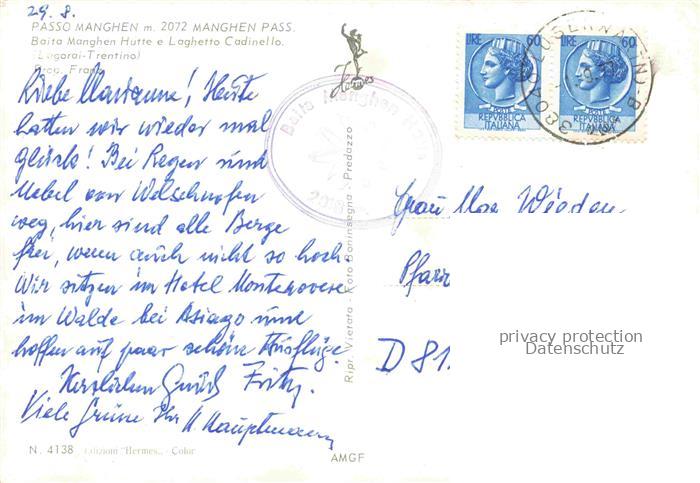 29. 8.
PASSO MANGHEN m. 2072 MANGHEN PASS.
Baita Manghen Hutte e Laghetto Cadinello.
(Lagorai-Trentino)
Liebe Marianne! Heute
hatten wir wieder mal
Glück! Bei Regen und
Nebel von Welschnofen
weg, hier sind alle Berge
frei, wenn auch nicht so hoch.
Wir sitzen im Hotel Monterovere
im Walde bei Asiago und
hoffen auf paar schöne Ausflüge.
Herzlichen Gruß Fritz.
Viele Grüße Ihr H Hauptmann
N. 4138 Edizioni "Hermes" - Color
Hermes
Baita Manghen
Ripr. Vietata - Foto Boninsegna - Predazzo
AMGF
LIRE 60
POSTE
REPVBBLICA
ITALIANA
LIRE 60
POSTE
REPVBBLICA
ITALIANA
LUSERNA (TN)
Frau
Pfarr
D 81
privacy protection
Datenschutz